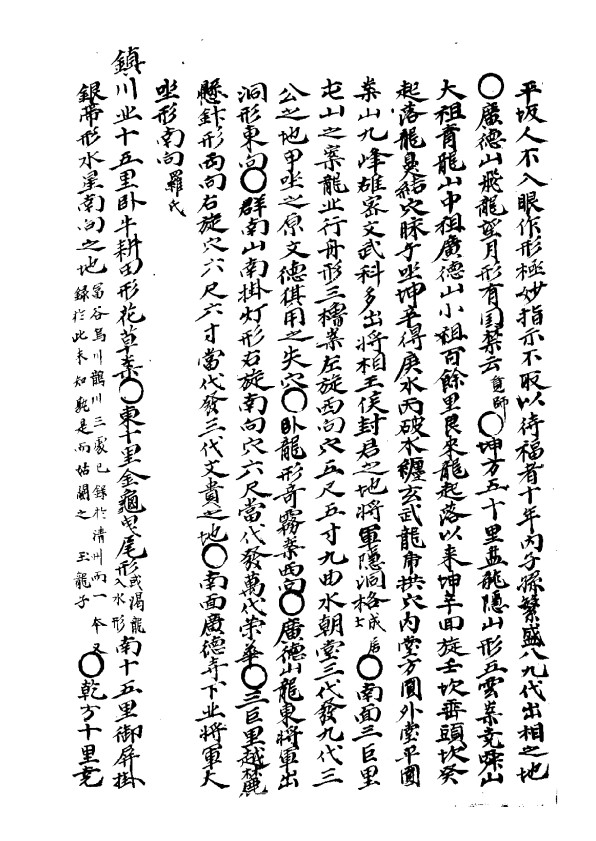 平坂人不入眼作形極妙指示不取以待福者十年內子孫繁盛八九代出相之地
○廣德山飛龍望月形有国禁云覓師○坤方五十里盘龍隱山形五雲案克蝶山
大祖青龍山中祖廣德山小祖百餘里艮來龍起落以來坤羊回旋壬坎晋頭坎癸
起落龍鼻結穴睐子坐坤辛得庚水丙破水纏玄武龍虎拱穴內堂方圓外堂平圓
案山九峰雄密文武科多出將相王侯封君之地將軍隱洞格士成居○南面三巨里
屯山之案龍业行舟形三櫓案左旋西向穴五尺五寸九曲水朝堂三代發九代三
公之地甲坐之原文德俱用之失穴○卧龍形奇霧案西向○廣德山龍東將軍出
洞形東向○群南山南掛灯形右旋南向穴六尺當代發萬代荣華○三巨里越麓
懸針形西向右旋穴六尺六寸當代發三代文貴之地○南面廣德寺下业將軍大
坐形南向羅氏
鎮川业十五里卧牛耕田形花草案○東十里金龜曳尾形或渴龍入水形南十五里御屏掛
銀帶形水星南向之地富谷烏川鵲川三處已錄於清州而一本又錄於此未知孰是而姑闕之玉龍子○乾方十里克